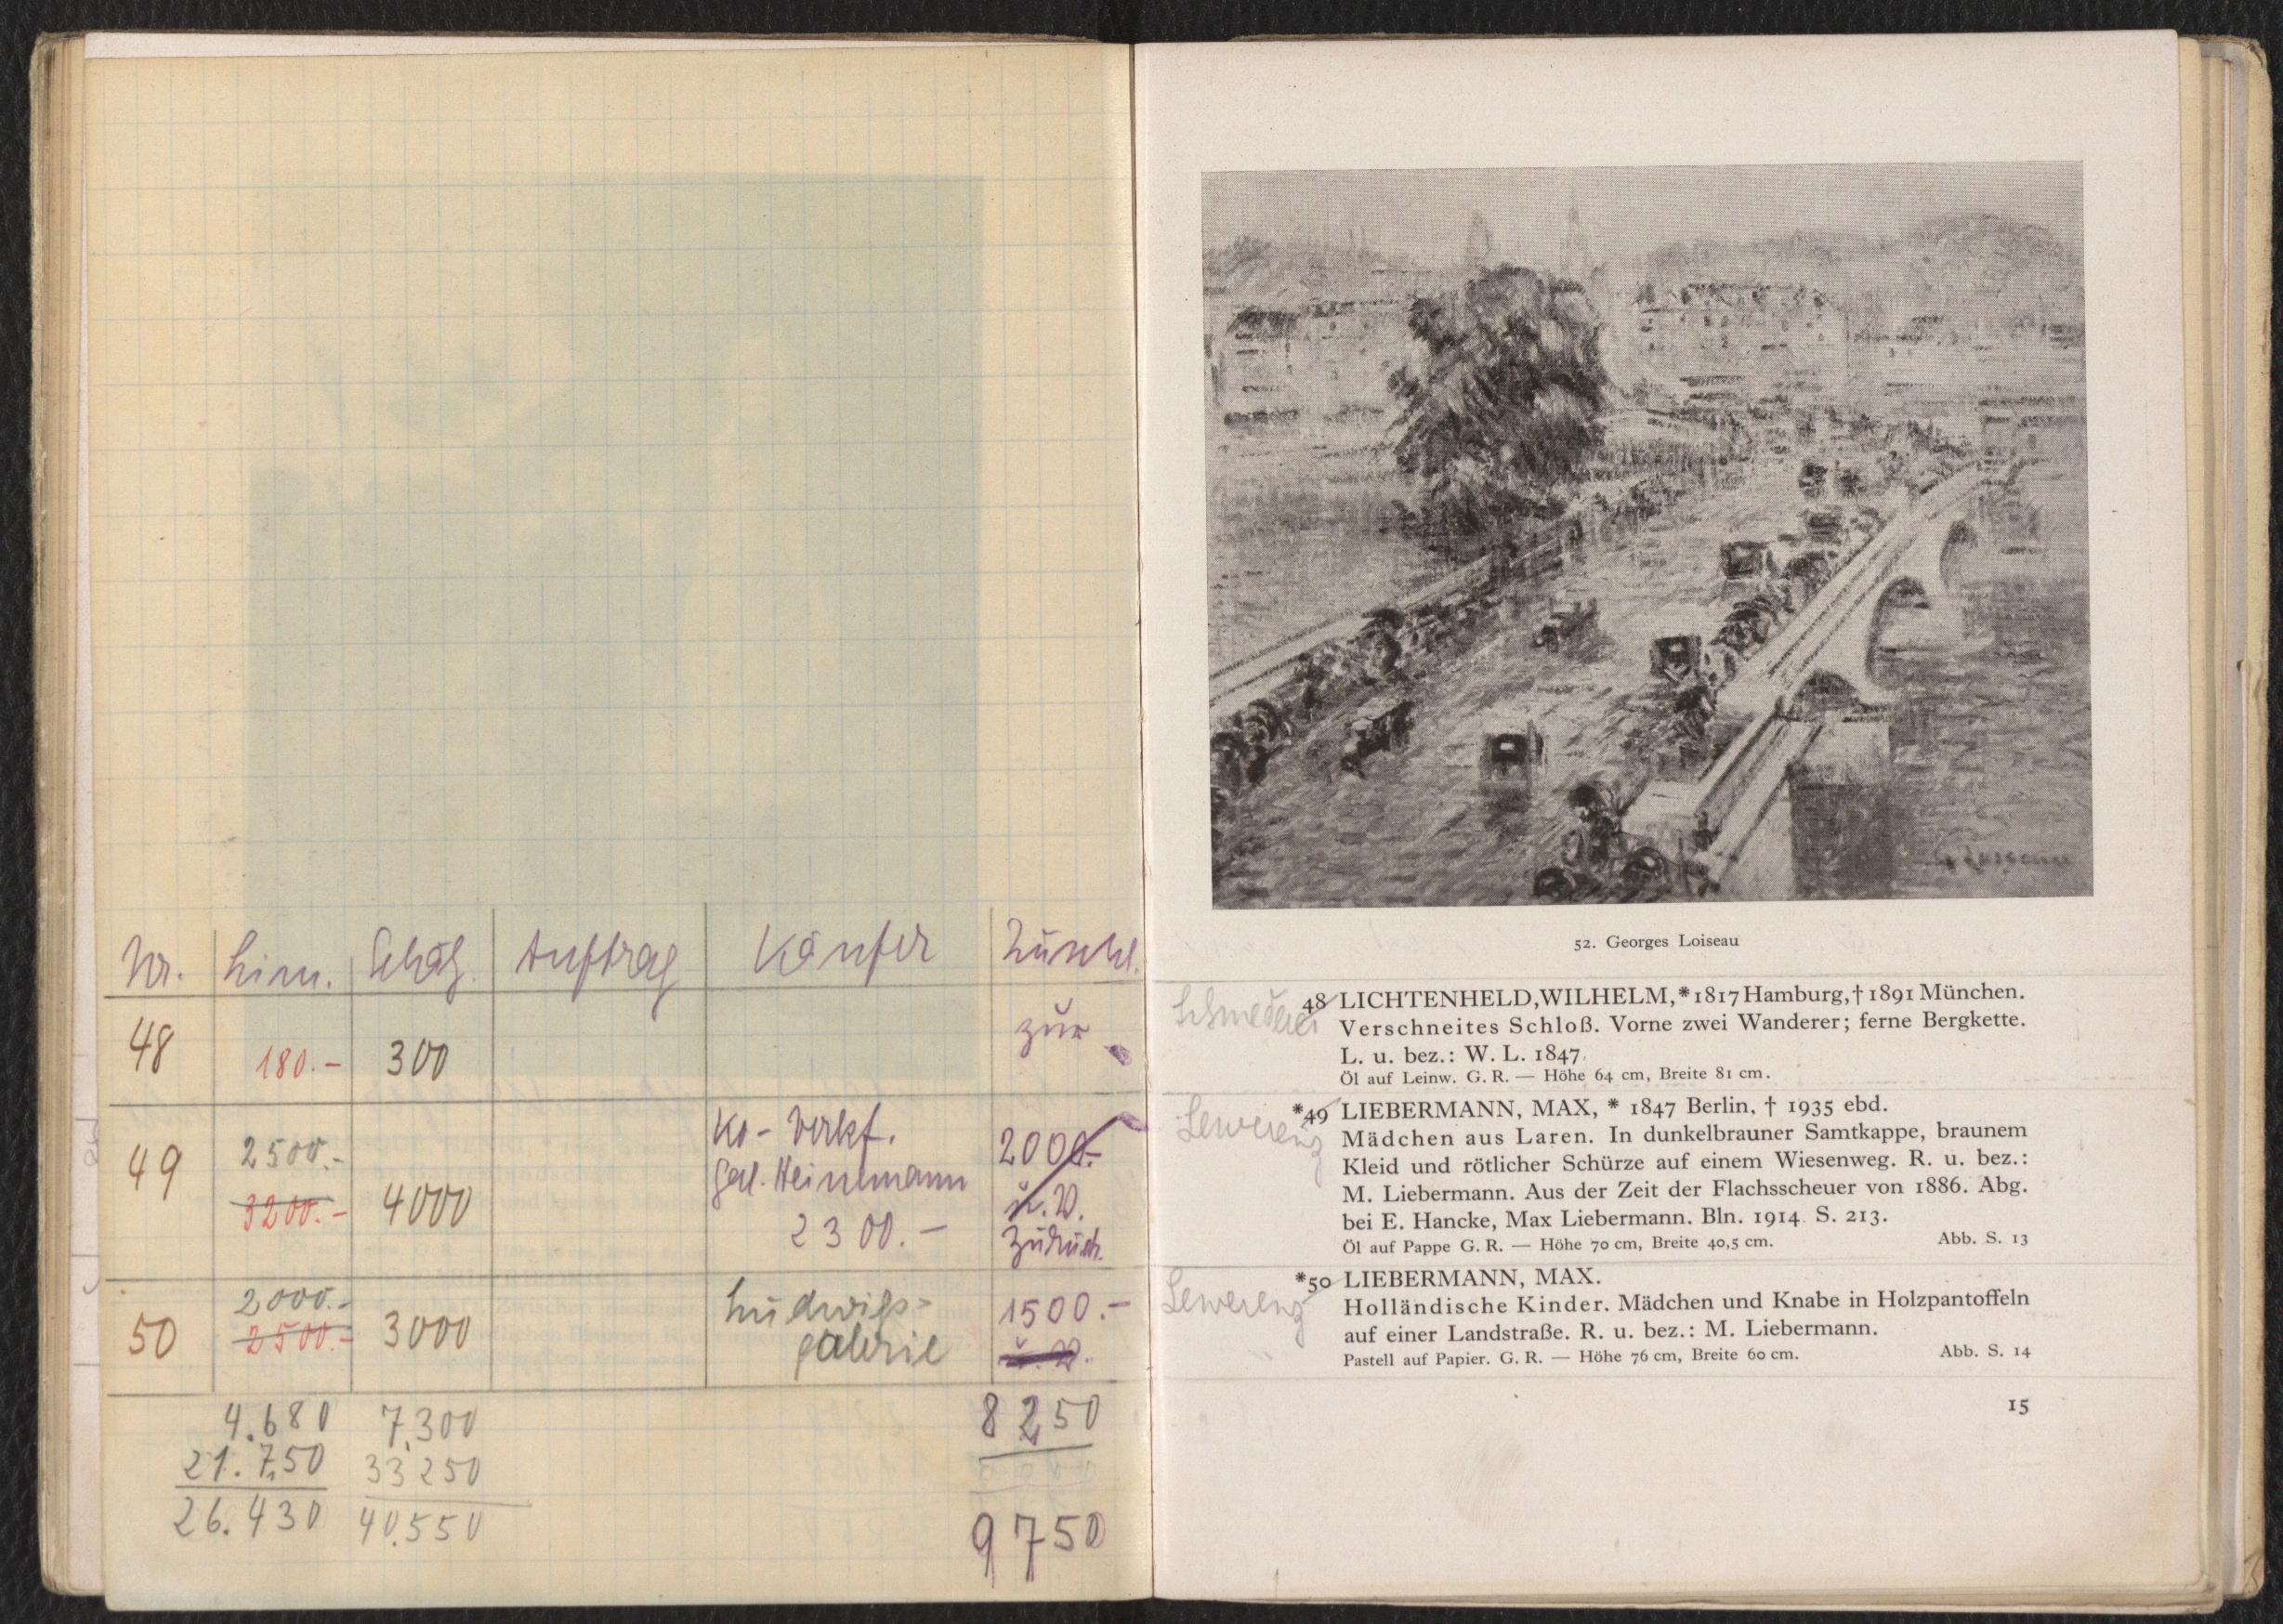 Nr. Lim. Schätz. Auftrag Käufer Zuschl.
48 180.- 300 zur
49 2500.- 3200.- 4000 Ko-Verkf. Gal. Heinemann 2300.- 2000.- u. V. Zurück.
50 2000.- 2500.- 3000 Ludwigs-galerie 1500.- u. V.
4.680 7.300 8250
21.750 33250
26.430 40.550 9750
52. Georges Loiseau
48 LICHTENHELD, WILHELM, * 1817 Hamburg, † 1891 München.
Verschneites Schloß. Vorne zwei Wanderer; ferne Bergkette.
L. u. bez.: W. L. 1847.
Öl auf Leinw. G. R. — Höhe 64 cm, Breite 81 cm.
Lewerenz
*49 LIEBERMANN, MAX, * 1847 Berlin, † 1935 ebd.
Mädchen aus Laren. In dunkelbrauner Samtkappe, braunem
Kleid und rötlicher Schürze auf einem Wiesenweg. R. u. bez.:
M. Liebermann. Aus der Zeit der Flachsscheuer von 1886. Abg.
bei E. Hancke, Max Liebermann. Bln. 1914. S. 213.
Öl auf Pappe G. R. — Höhe 70 cm, Breite 40,5 cm. Abb. S. 13
Lewerenz
*50 LIEBERMANN, MAX.
Holländische Kinder. Mädchen und Knabe in Holzpantoffeln
auf einer Landstraße. R. u. bez.: M. Liebermann.
Pastell auf Papier. G. R. — Höhe 76 cm, Breite 60 cm. Abb. S. 14
15